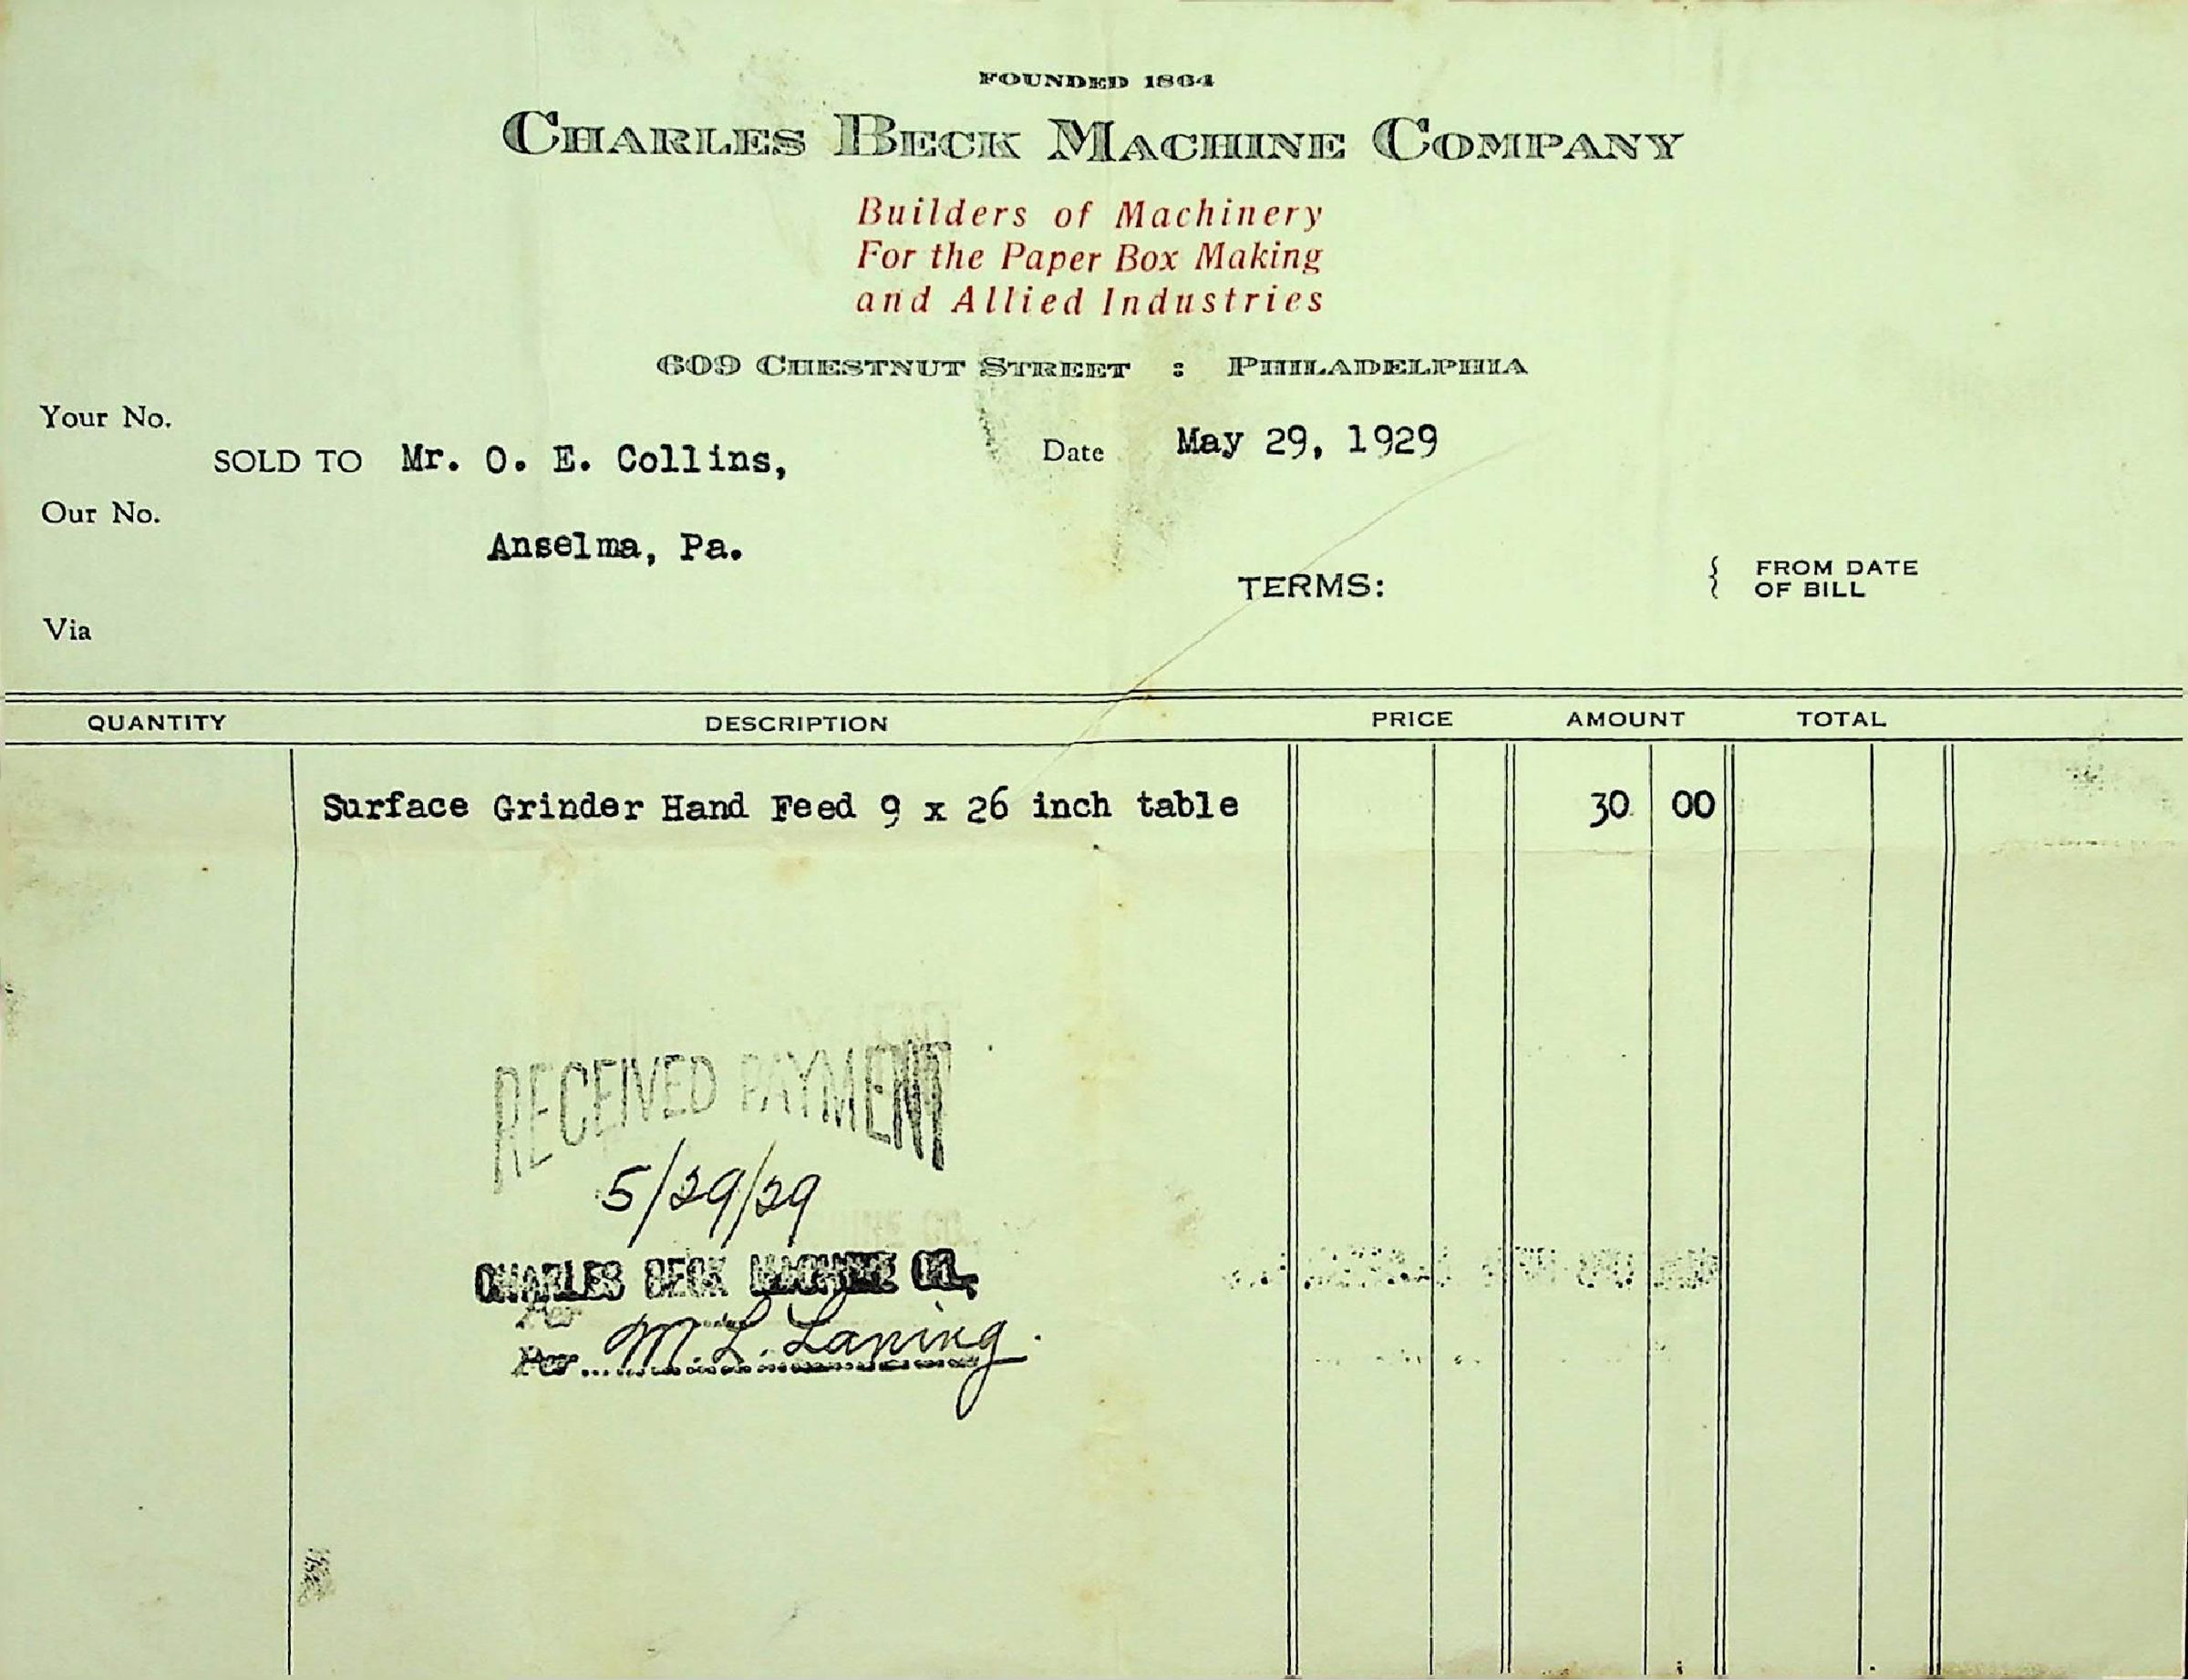 FOUNDED 1864
CHARLES BECK MACHINE COMPANY
Builders of Machinery
For the Paper Box Making
and Allied Industries
609 CHESTNUT STREET : PHILADELPHIA
Your No.
SOLD TO Mr. O. E. Collins,
Date May 29, 1929
Our No.
Anselma, Pa.
TERMS:
{ FROM DATE
OF BILL
Via
QUANTITY DESCRIPTION PRICE AMOUNT TOTAL
Surface Grinder Hand Feed 9 x 26 inch table 30 00
RECEIVED PAYMENT
5/29/29
CHARLES BECK MACHINE CO.
Per M. L. Laning.